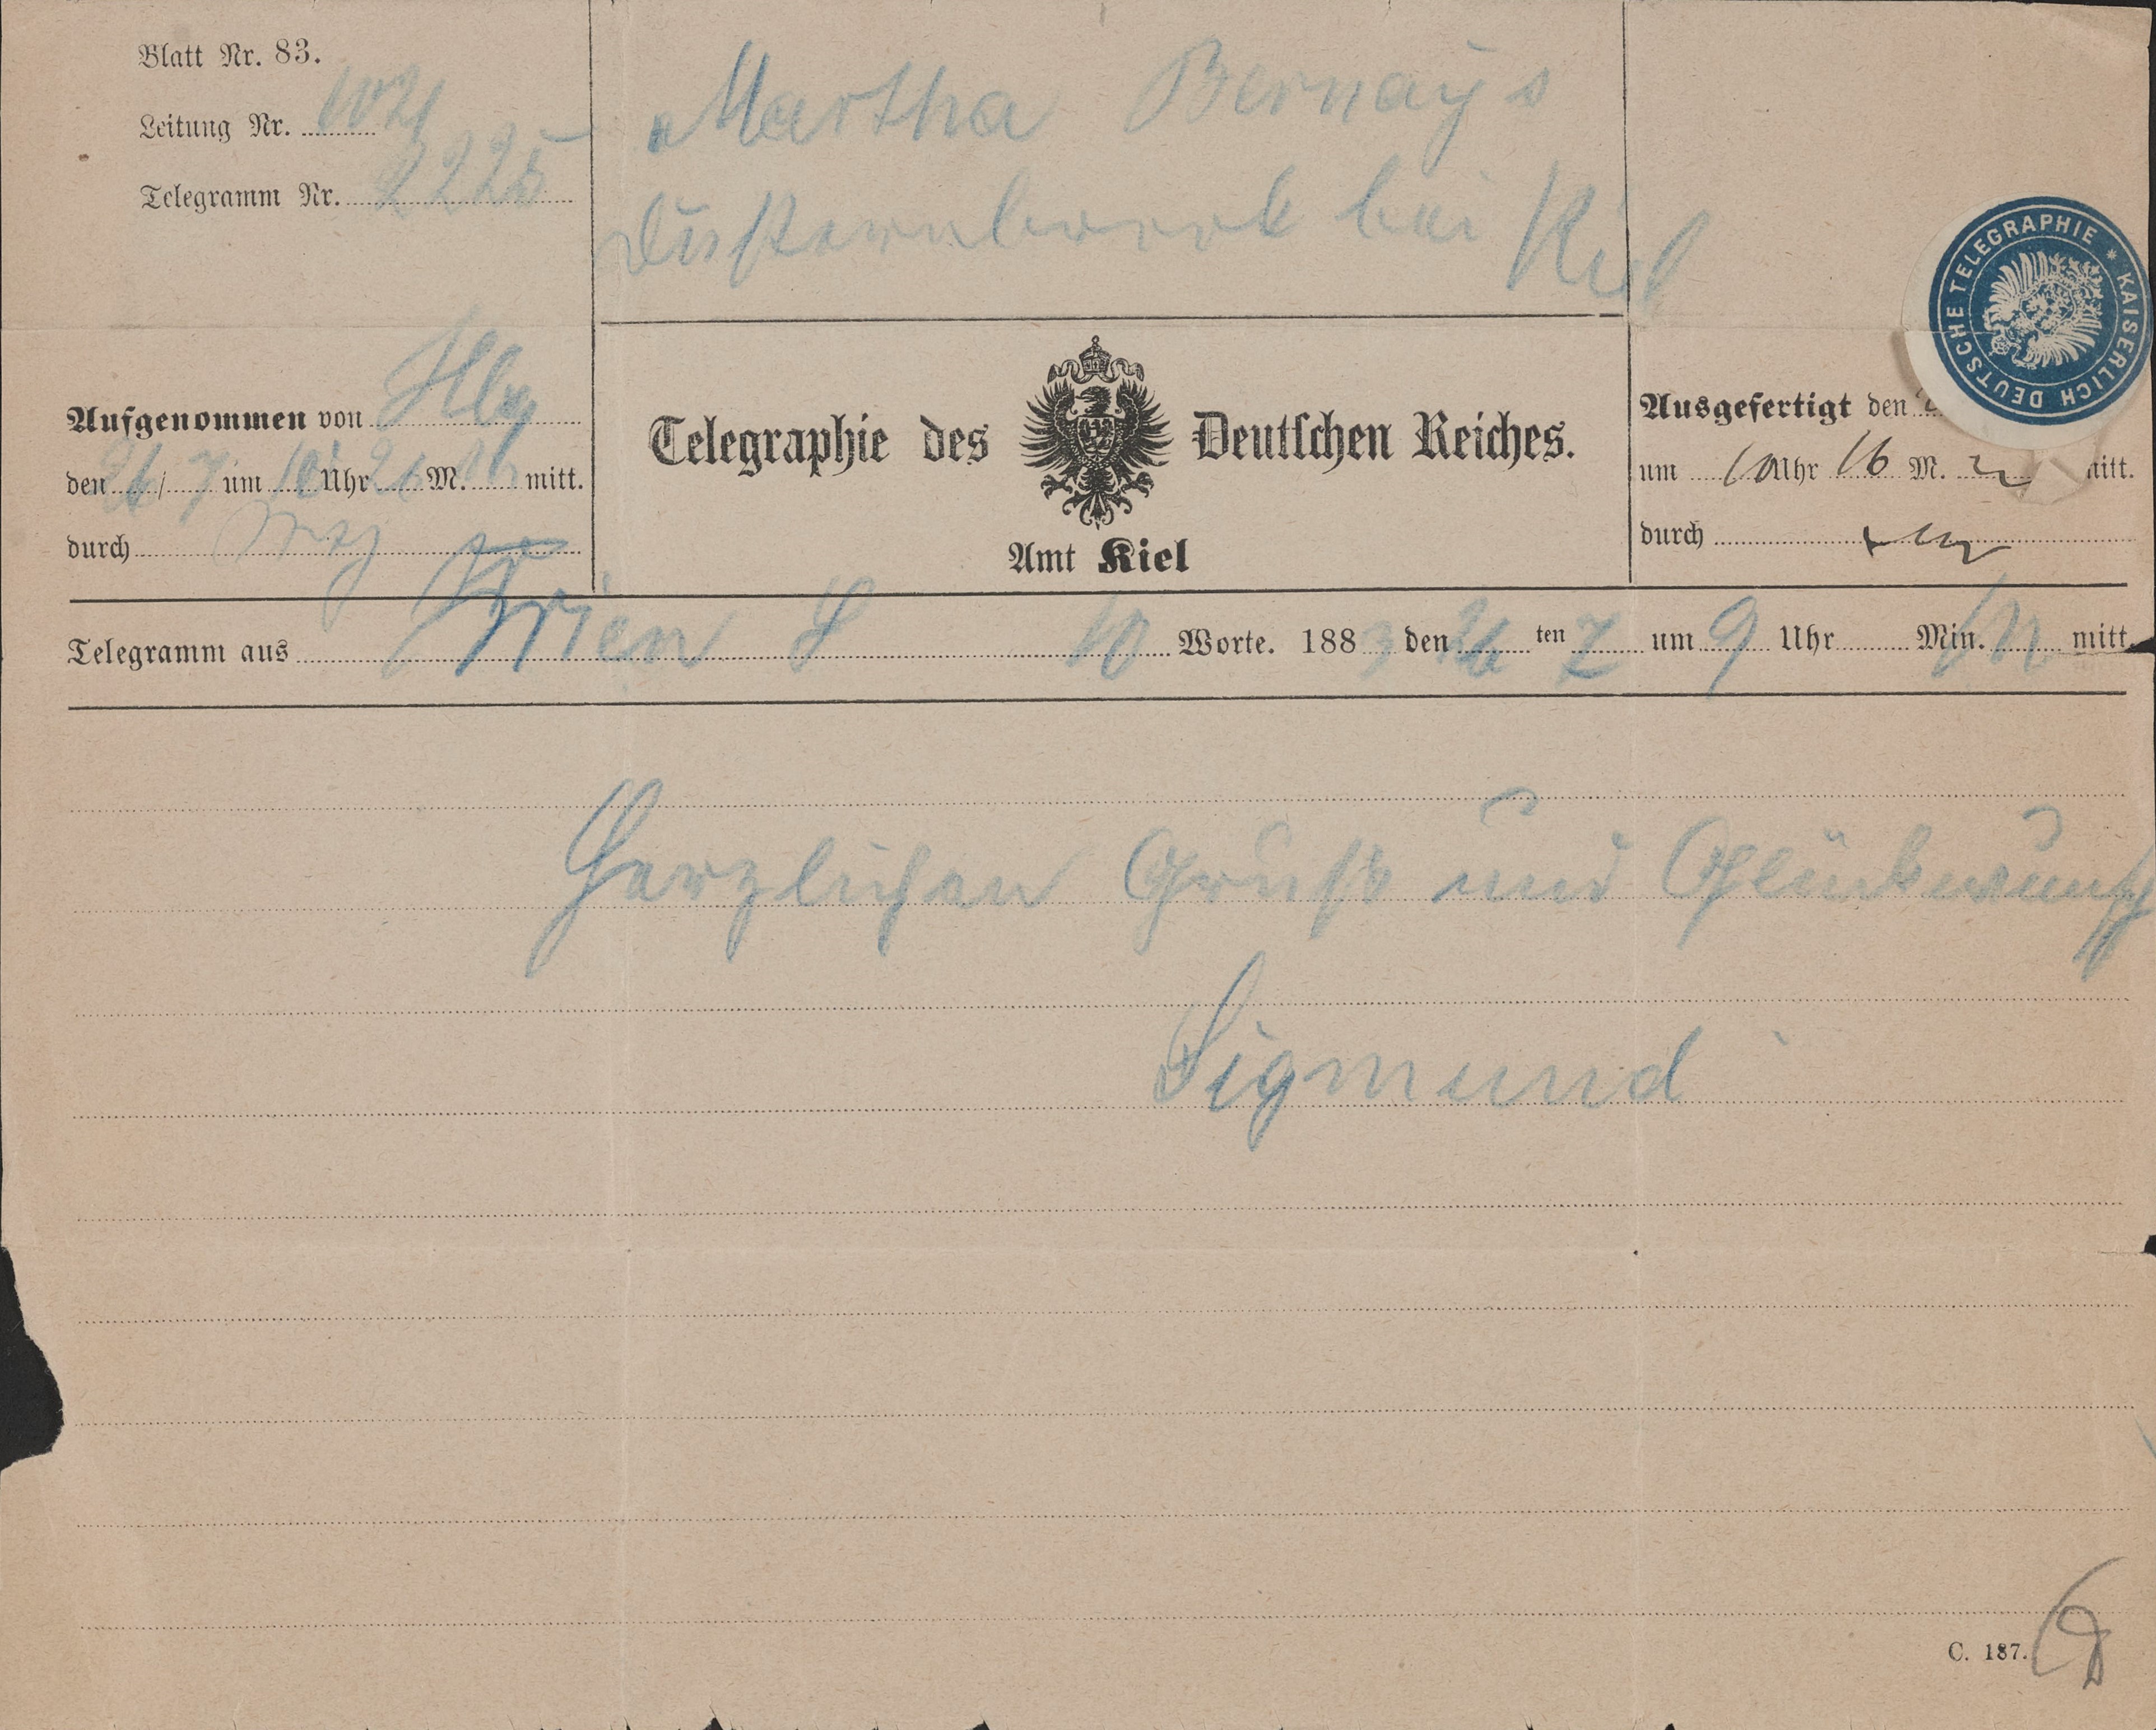 Blatt Nr. 83.
Leitung Nr.
Telegramm Nr. 2225
Martha Bernays
Düsternbrook bei Kiel
KAISERLICH DEUTSCHE TELEGRAPHIE *
Aufgenommen von Hbg
den 26/7 um 10 Uhr 26 M. mitt.
durch
Telegraphie des Deutschen Reiches.
Amt Kiel
Ausgefertigt den
um 10 Uhr 16 M. mitt.
durch
Telegramm aus Wien 10 Worte. 1883 den 26 ten 7 um 9 Uhr Min. mitt.
Herzlichen Gruß und Glückwunsch
Sigmund
C. 187.